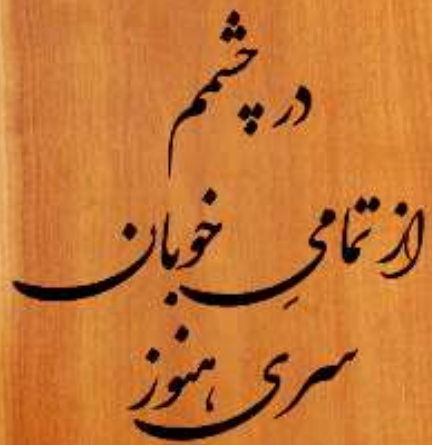 در چشمم
از تمامیِ خوبان
سری هنوز